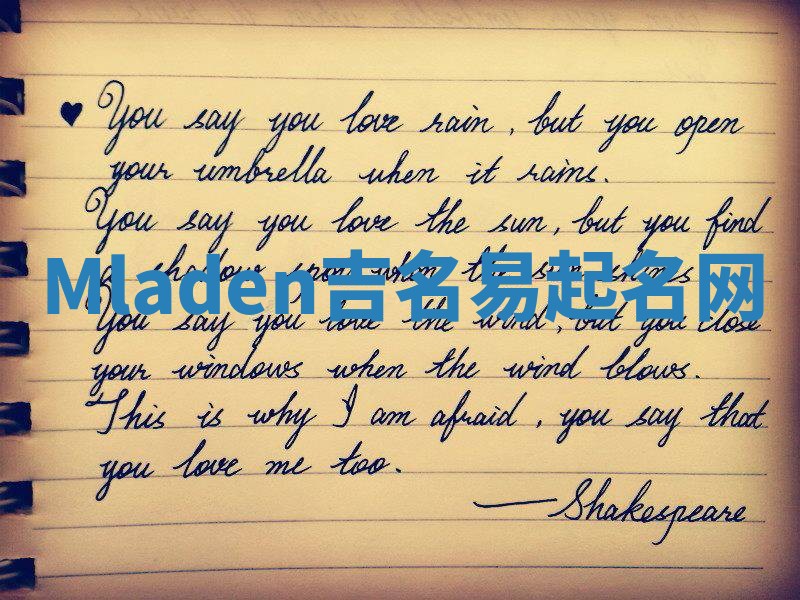 ♥ You say you love rain, but you open
your umbrella when it rains.
You say you love the sun, but you find
a shadow spot when the sun shines
Mladen吉名易起名网
You say you love the wind, but you close
your windows when the wind blows.
This is why I am afraid, you say that
you love me too.
—Shakespeare